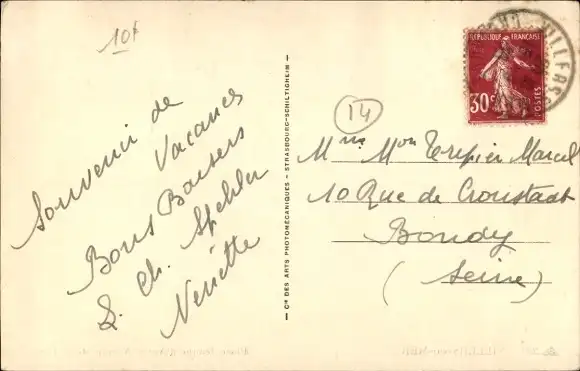 10f
Souvenir de
Vacances
Bons Baisers
& Ch. Spehler
Neniette
Cie DES ARTS PHOTOMÉCANIQUES - STRASBOURG-SCHILTIGHEIM
RÉPUBLIQUE FRANÇAISE
30c
POSTES
14
Mme Mon Trepier Marcel
10 Rue de Cronstadt
Bondy
(Seine)